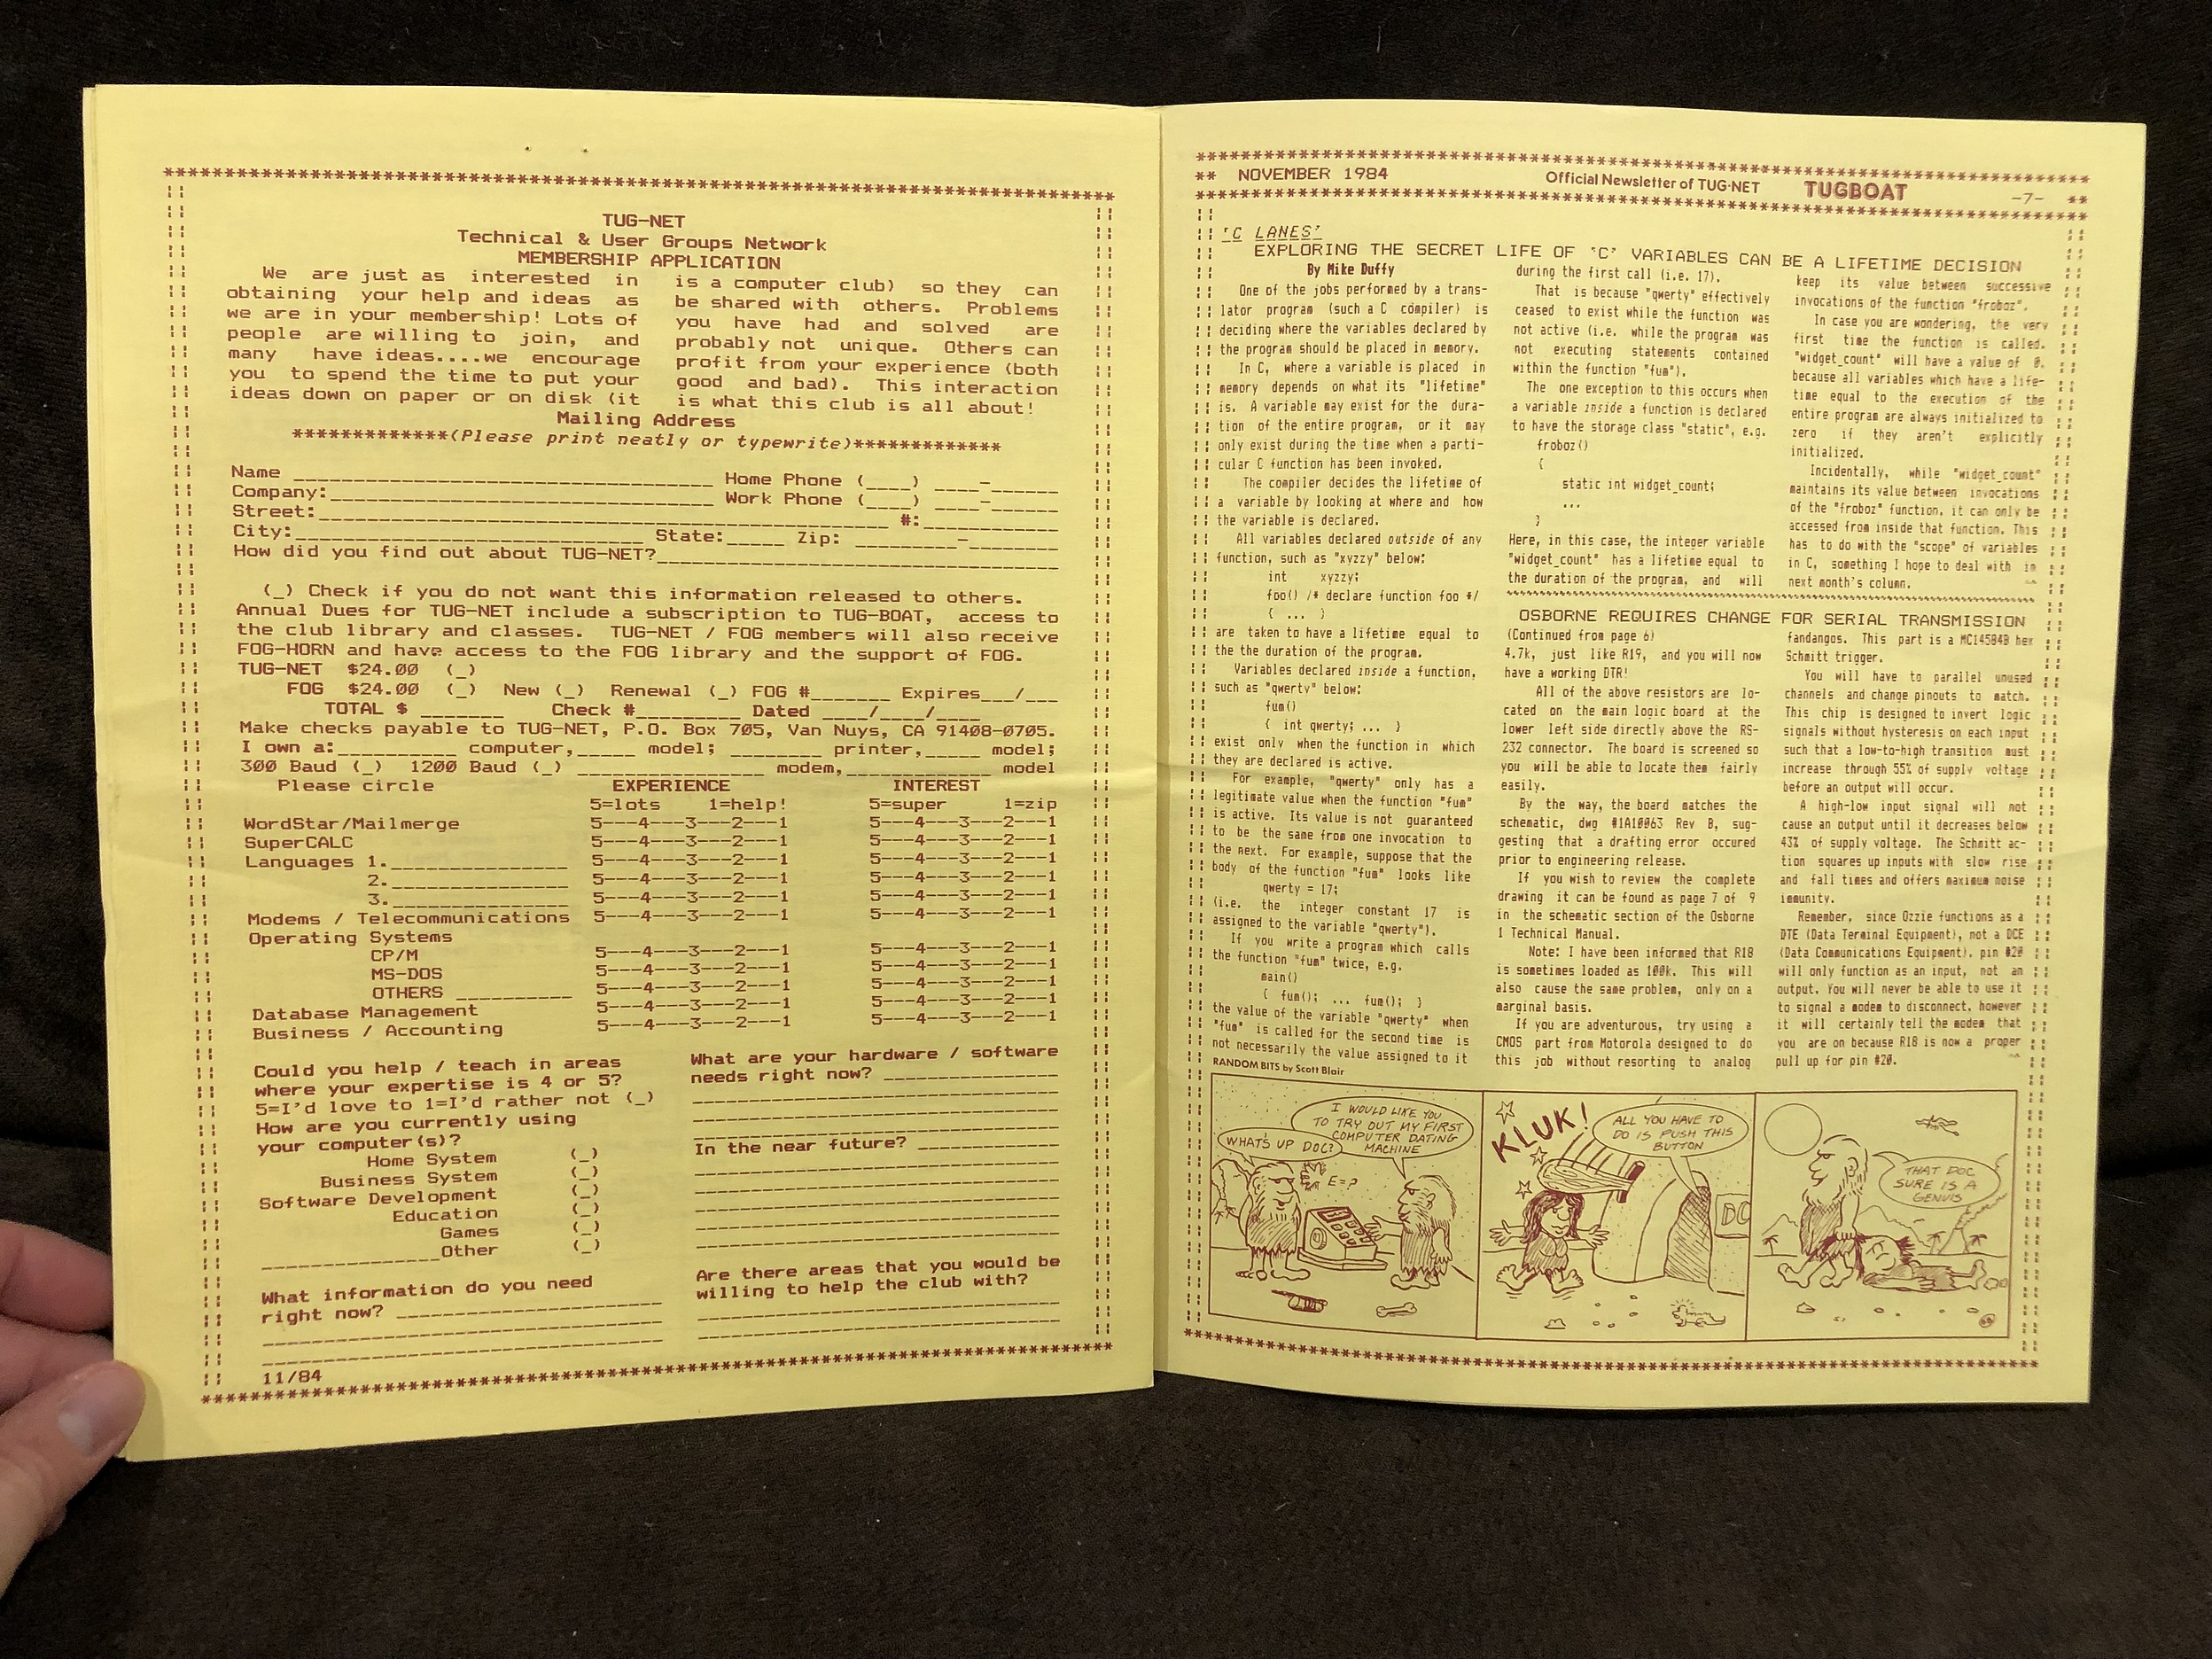 TUG-NET
Technical & User Groups Network
MEMBERSHIP APPLICATION
We are just as interested in
obtaining your help and ideas as
we are in your membership! Lots of
people are willing to join, and
many have ideas....we encourage
you to spend the time to put your
ideas down on paper or on disk (it
is a computer club) so they can
be shared with others. Problems
you have had and solved are
probably not unique. Others can
profit from your experience (both
good and bad). This interaction
is what this club is all about!
Mailing Address
*************(Please print neatly or typewrite)*************
Name ____ Home Phone (____) ____-______
Company:____ Work Phone (____) ____-______
Street:____ #:____
City:____ State:_____ Zip: ____-____
How did you find out about TUG-NET?____
(_) Check if you do not want this information released to others.
Annual Dues for TUG-NET include a subscription to TUG-BOAT, access to
the club library and classes. TUG-NET / FOG members will also receive
FOG-HORN and have access to the FOG library and the support of FOG.
TUG-NET $24.00 (_)
FOG $24.00 (_) New (_) Renewal (_) FOG #_______ Expires___/___
TOTAL $ _______ Check #_________ Dated ____/____/____
Make checks payable to TUG-NET, P.O. Box 705, Van Nuys, CA 91408-0705.
I own a:__________ computer,_____ model; ________ printer,_____ model;
300 Baud (_) 1200 Baud (_) ________________ modem,____________ model
Please circle EXPERIENCE INTEREST
5=lots 1=help! 5=super 1=zip
WordStar/Mailmerge 5---4---3---2---1 5---4---3---2---1
SuperCALC 5---4---3---2---1 5---4---3---2---1
Languages 1._______________ 5---4---3---2---1 5---4---3---2---1
2._______________ 5---4---3---2---1 5---4---3---2---1
3._______________ 5---4---3---2---1 5---4---3---2---1
Modems / Telecommunications 5---4---3---2---1 5---4---3---2---1
Operating Systems
CP/M 5---4---3---2---1 5---4---3---2---1
MS-DOS 5---4---3---2---1 5---4---3---2---1
OTHERS __________ 5---4---3---2---1 5---4---3---2---1
Database Management 5---4---3---2---1 5---4---3---2---1
Business / Accounting 5---4---3---2---1 5---4---3---2---1
Could you help / teach in areas
where your expertise is 4 or 5?
5=I'd love to 1=I'd rather not (_)
How are you currently using
your computer(s)?
Home System (_)
Business System (_)
Software Development (_)
Education (_)
Games (_)
_______________Other (_)
What information do you need
right now? ______________________
What are your hardware / software
needs right now? ______________
In the near future? ___________
Are there areas that you would be
willing to help the club with?
11/84
** NOVEMBER 1984 Official Newsletter of TUG·NET TUGBOAT -7- **
'C LANES'
EXPLORING THE SECRET LIFE OF 'C' VARIABLES CAN BE A LIFETIME DECISION
By Mike Duffy
One of the jobs performed by a trans-
lator program (such a C compiler) is
deciding where the variables declared by
the program should be placed in memory.
In C, where a variable is placed in
memory depends on what its "lifetime"
is. A variable may exist for the dura-
tion of the entire program, or it may
only exist during the time when a parti-
cular C function has been invoked.
The compiler decides the lifetime of
a variable by looking at where and how
the variable is declared.
All variables declared outside of any
function, such as "xyzzy" below:
int xyzzy;
foo() /* declare function foo */
{ ... }
are taken to have a lifetime equal to
the the duration of the program.
Variables declared inside a function,
such as "qwerty" below:
fum()
{ int qwerty; ... }
exist only when the function in which
they are declared is active.
For example, "qwerty" only has a
legitimate value when the function "fum"
is active. Its value is not guaranteed
to be the same from one invocation to
the next. For example, suppose that the
body of the function "fum" looks like
qwerty = 17;
(i.e. the integer constant 17 is
assigned to the variable "qwerty").
If you write a program which calls
the function "fum" twice, e.g.
main()
{ fum(); ... fum(); }
the value of the variable "qwerty" when
"fum" is called for the second time is
not necessarily the value assigned to it
during the first call (i.e. 17).
That is because "qwerty" effectively
ceased to exist while the function was
not active (i.e. while the program was
not executing statements contained
within the function "fum").
The one exception to this occurs when
a variable inside a function is declared
to have the storage class "static", e.g.
froboz()
{
static int widget_count;
...
}
Here, in this case, the integer variable
"widget_count" has a lifetime equal to
the duration of the program, and will
keep its value between successive
invocations of the function "froboz".
In case you are wondering, the very
first time the function is called.
"widget_count" will have a value of 0,
because all variables which have a life-
time equal to the execution of the
entire program are always initialized to
zero if they aren't explicitly
initialized.
Incidentally, while "widget_count"
maintains its value between invocations
of the "froboz" function, it can only be
accessed from inside that function. This
has to do with the "scope" of variables
in C, something I hope to deal with in
next month's column. ^^
OSBORNE REQUIRES CHANGE FOR SERIAL TRANSMISSION
(Continued from page 6)
4.7k, just like R19, and you will now
have a working DTR!
All of the above resistors are lo-
cated on the main logic board at the
lower left side directly above the RS-
232 connector. The board is screened so
you will be able to locate them fairly
easily.
By the way, the board matches the
schematic, dwg #1A10063 Rev B, sug-
gesting that a drafting error occured
prior to engineering release.
If you wish to review the complete
drawing it can be found as page 7 of 9
in the schematic section of the Osborne
1 Technical Manual.
Note: I have been informed that R18
is sometimes loaded as 100k. This will
also cause the same problem, only on a
marginal basis.
If you are adventurous, try using a
CMOS part from Motorola designed to do
this job without resorting to analog
fandangos. This part is a MC14584B hex
Schmitt trigger.
You will have to parallel unused
channels and change pinouts to match.
This chip is designed to invert logic
signals without hysteresis on each input
such that a low-to-high transition must
increase through 55% of supply voltage
before an output will occur.
A high-low input signal will not
cause an output until it decreases below
43% of supply voltage. The Schmitt ac-
tion squares up inputs with slow rise
and fall times and offers maximum noise
immunity.
Remember, since Ozzie functions as a
DTE (Data Terminal Equipment), not a DCE
(Data Communications Equipment), pin #20
will only function as an input, not an
output. You will never be able to use it
to signal a modem to disconnect, however
it will certainly tell the modem that
you are on because R18 is now a proper
pull up for pin #20. ^^
RANDOM BITS by Scott Blair
WHAT'S UP DOC?
I WOULD LIKE YOU
TO TRY OUT MY FIRST
COMPUTER DATING
MACHINE
E=?
KLUK!
ALL YOU HAVE TO
DO IS PUSH THIS
BUTTON
DC
THAT DOC
SURE IS A
GENUIS